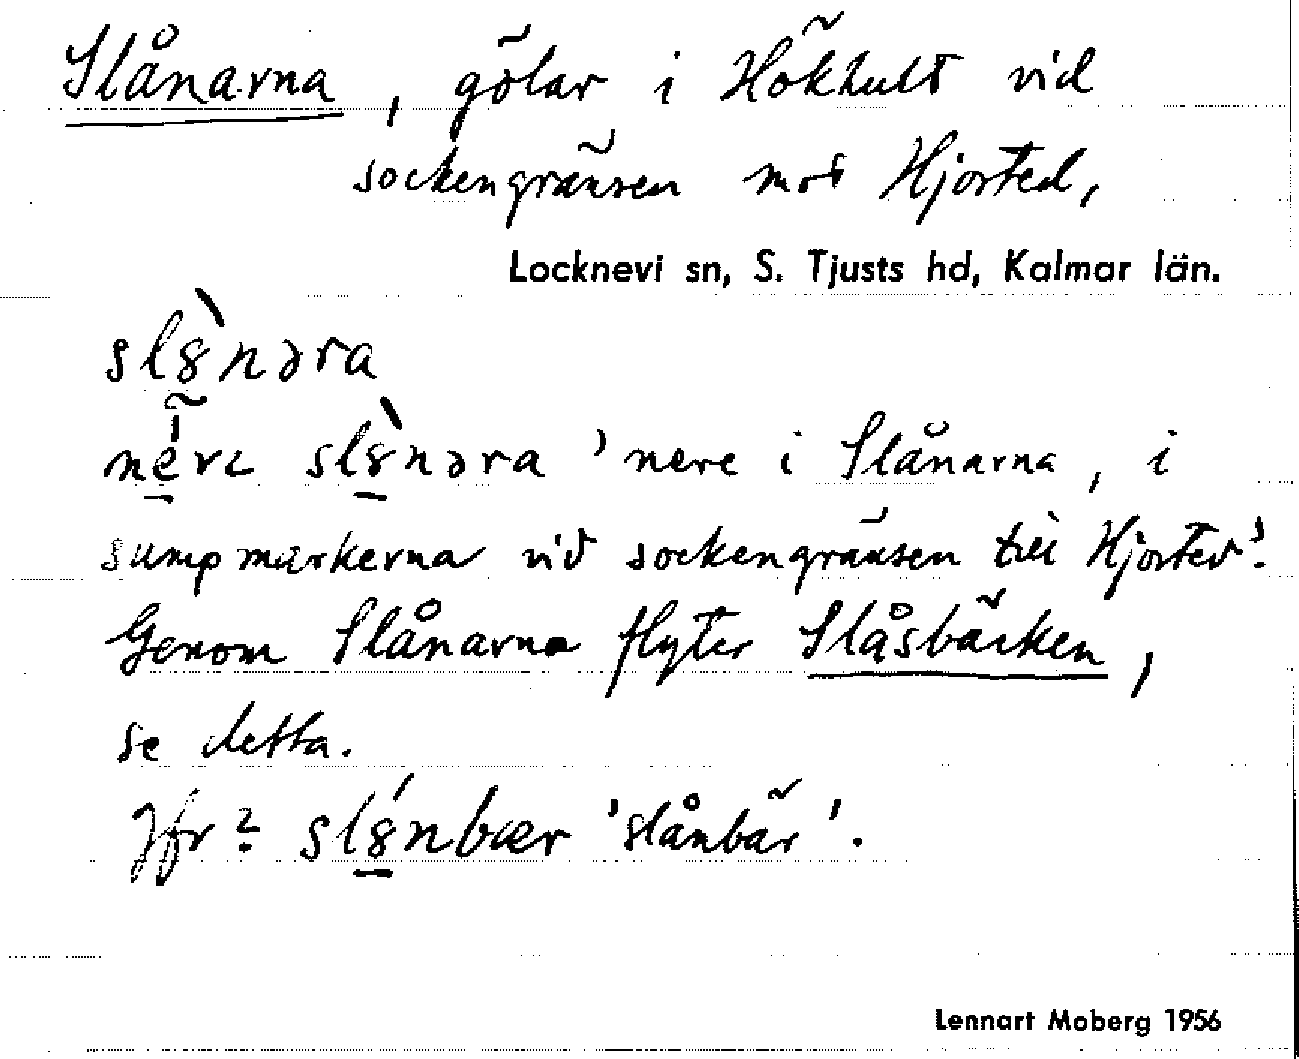 Slånarna, gölar i Hökhult vid
sockengränsen mot Hjorted,
Locknevi sn, S. Tjusts hd, Kalmar län.
slȣ̀nəra
nérɩ slȣ̀nəra 'nere i Slånarna, i
sumpmarkerna vid sockengränsen till Hjorted'.
Genom Slånarna flyter Slåsbäcken,
se detta.
Jfr? slȣ́nbær 'slånbär'.
Lennart Moberg 1956